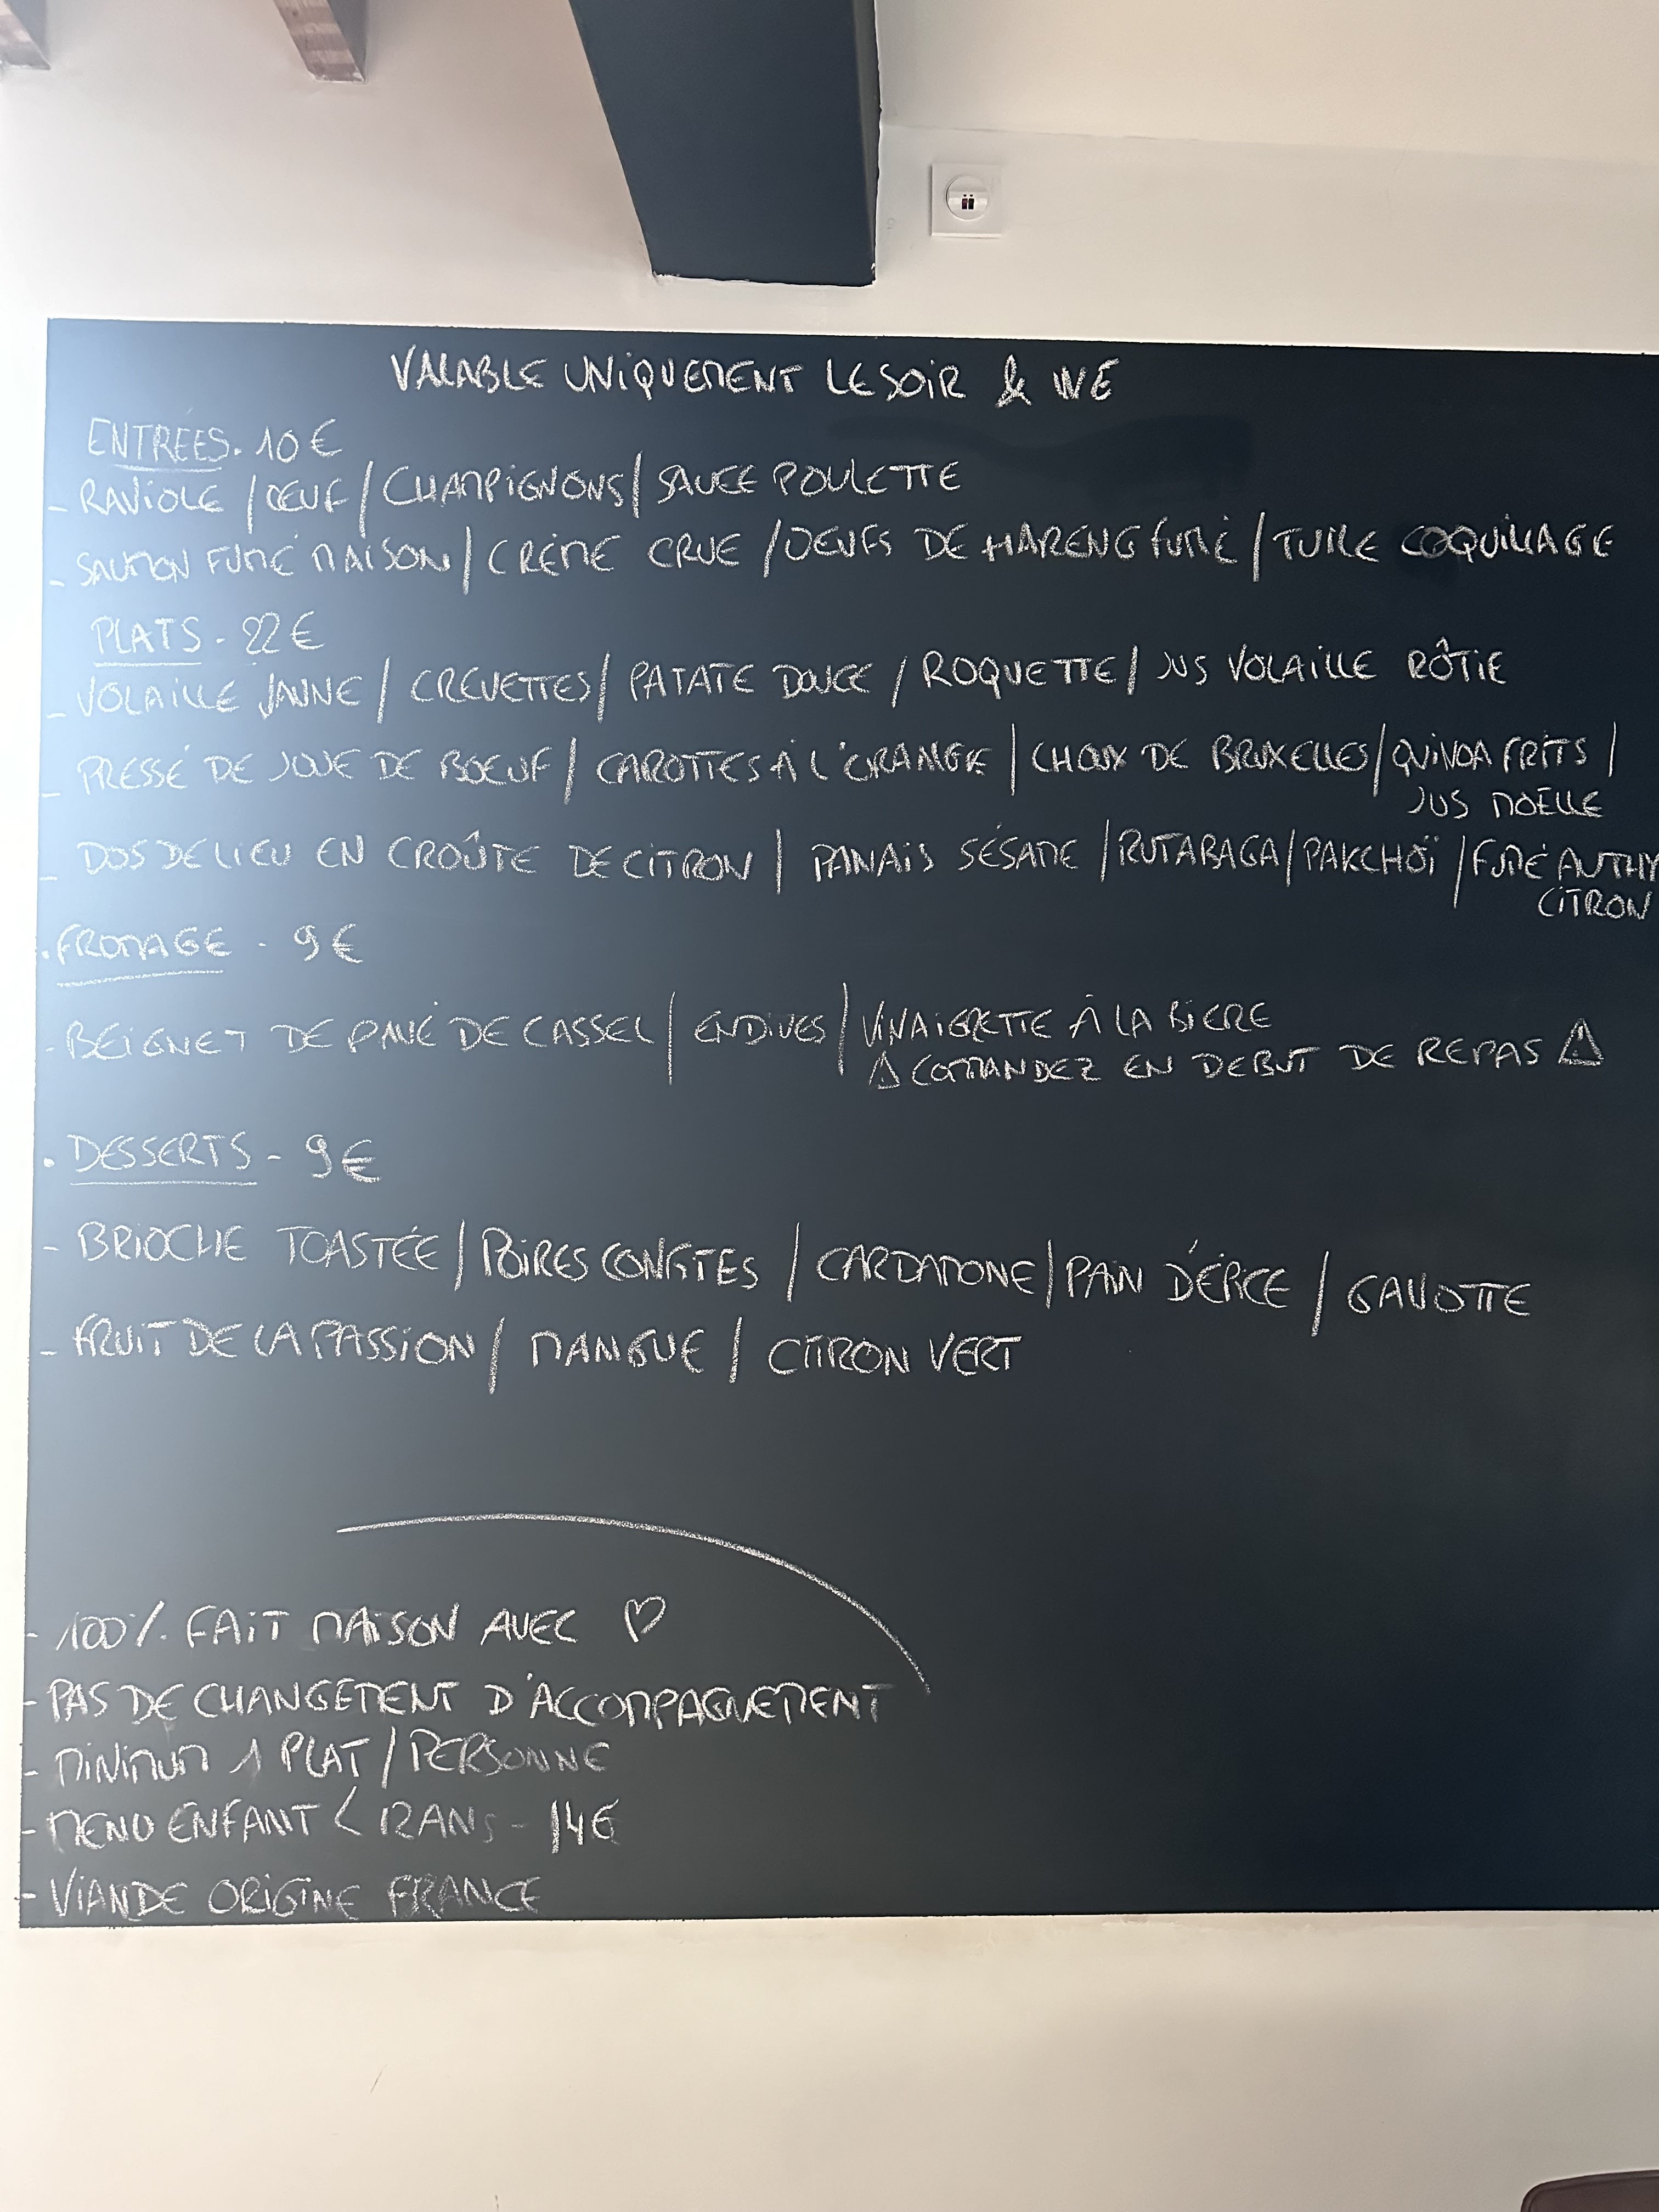 VALABLE UNIQUEMENT LE SOIR & WE
ENTRÉES. 10€
- RAVIOLE / OEUF / CHAMPIGNONS / SAUCE POULETTE
- SAUMON FUMÉ MAISON / CRÈME CRUE / OEUFS DE HARENG FUMÉ / TUILE COQUILLAGE
PLATS - 22€
- VOLAILLE JAUNE / CREVETTES / PATATE DOUCE / ROQUETTE / JUS VOLAILLE RÔTIE
- PRESSÉ DE JOUE DE BOEUF / CAROTTES À L'ORANGE / CHOUX DE BRUXELLES / QUINOA FRITS /
JUS MOËLLE
- DOS DE LIEU EN CROÛTE DE CITRON / PANAIS SÉSAME / RUTABAGA / PAKCHOÏ / FUMÉ AU THY
CITRON
. FROMAGE - 9€
- BEIGNET DE PAVÉ DE CASSEL / ENDIVES / VINAIGRETTE À LA BIERE
⚠ COMMANDEZ EN DEBUT DE REPAS ⚠
. DESSERTS - 9€
- BRIOCHE TOASTÉE / POIRES CONFITES / CARDAMONE / PAIN D'ÉPICE / GAVOTTE
- FRUIT DE LA PASSION / MANGUE / CITRON VERT
- 100% FAIT MAISON AVEC ♡
- PAS DE CHANGEMENT D'ACCOMPAGNEMENT
- MINIMUM 1 PLAT / PERSONNE
- MENU ENFANT < 12 ANS - 14€
- VIANDE ORIGINE FRANCE